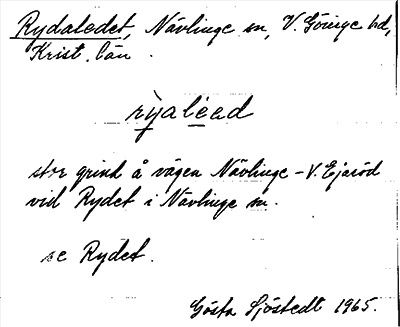 Rydaledet, Nävlinge sn, V. Göinge hd,
Krist. län.
ryaléad
stor grind å vägen Nävlinge - V. Ejaröd
vid Rydet i Nävlinge sn.
se Rydet.
Gösta Sjöstedt 1965.